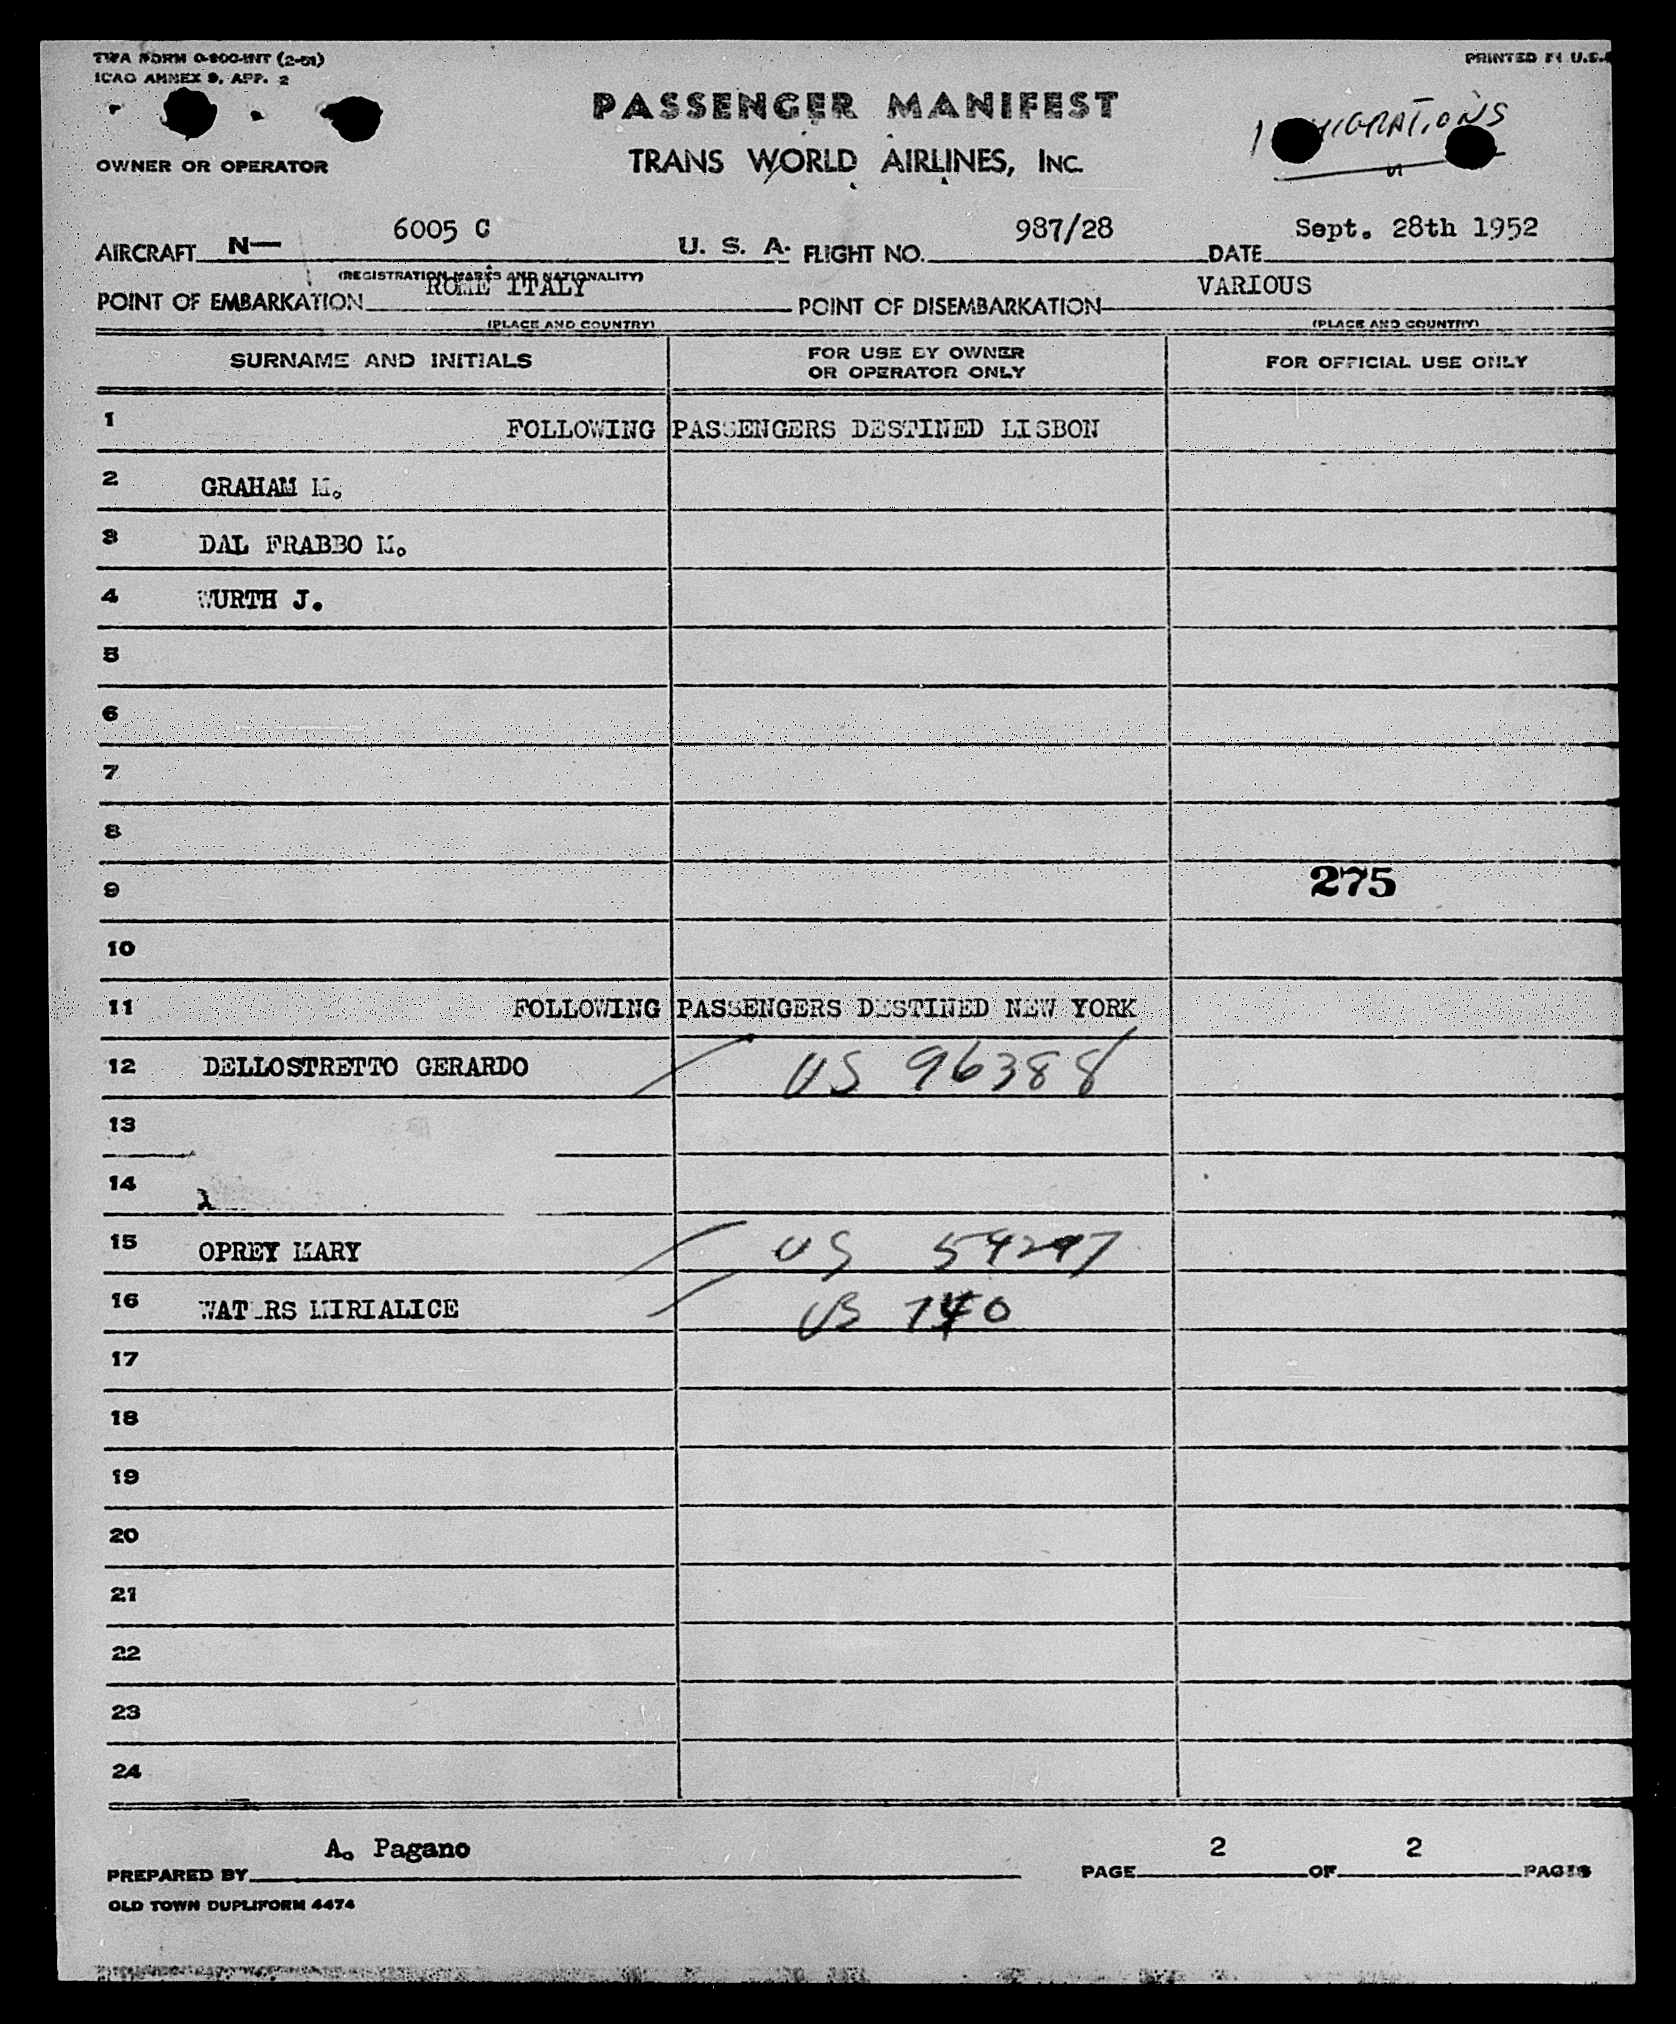 TWA FORM O-800-INT (2-51)
ICAO ANNEX 9, APP. 2
PRINTED IN U.S.
PASSENGER MANIFEST
TRANS WORLD AIRLINES, INC.
OWNER OR OPERATOR
AIRCRAFT N— 6005 C U. S. A. FLIGHT NO. 987/28 DATE Sept. 28th 1952
(REGISTRATION MARKS AND NATIONALITY)
POINT OF EMBARKATION ROME ITALY POINT OF DISEMBARKATION VARIOUS
(PLACE AND COUNTRY) (PLACE AND COUNTRY)
SURNAME AND INITIALS FOR USE BY OWNER OR OPERATOR ONLY FOR OFFICIAL USE ONLY
1 FOLLOWING PASSENGERS DESTINED LISBON
2 GRAHAM M.
3 DAL FRABBO M.
4 WURTH J.
5
6
7
8
9 275
10
11 FOLLOWING PASSENGERS DESTINED NEW YORK
12 DELLOSTRETTO GERARDO US 96388
13
14
15 OPREY MARY US 54297
16 WATERS MIRIALICE US 740
17
18
19
20
21
22
23
24
PREPARED BY A. Pagano PAGE 2 OF 2 PAGES
OLD TOWN DUPLIFORM 4474